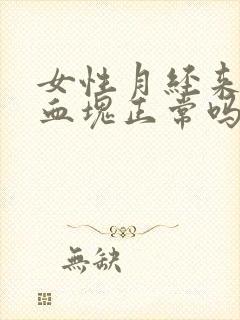 女性月经来
血塊正常吗
無缺